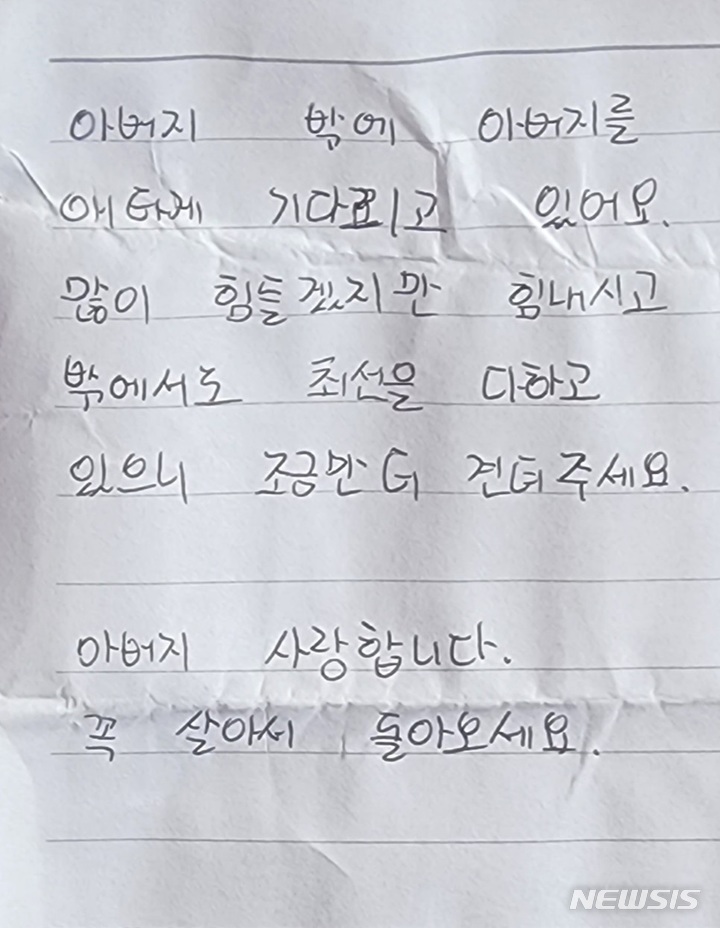 아버지 밖에 아버지를
애타게 기다리고 있어요.
많이 힘들겠지만 힘내시고
밖에서도 최선을 다하고
있으니 조금만 더 견뎌주세요.
아버지 사랑합니다.
꼭 살아서 돌아오세요.
NEWSIS